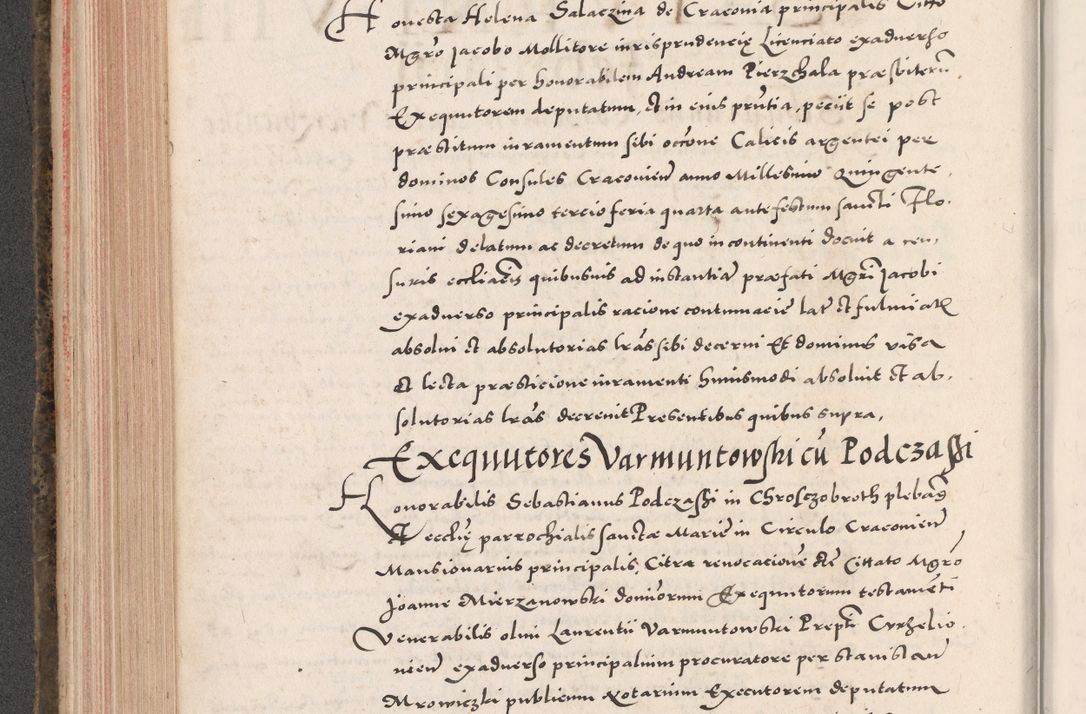 Honesta Helena Salaczina de Cracovia principalis Citto
Mgrō Jacobo Mollitore iurisprudencię Licenciato exadverso
principali per honorabilem Andream Pierzchala præsbiterū
Exequutorem deputatum, Et in eius pn̄tia, peciit se post
præstitum iuramentum sibi occōne Calicis argentei per
dominos Consules Cracovien̄ anno Millesimo Quingente.
simo sexagesimo tercio feria quarta ante festum sancti Flo.
riani delatum ac decretum de quo in continenti docuit a cen,
suris eccliāēs quibusvis ad instantiā præfati Mgrī Jacobi
exadverso principalis racione contumaciē lat̄ Et fulminat̄
absolvi Et absolutorias lrās sibi decerni Et dominus visa
Et lecta præsticione iuramenti huiusmodi absolvit Et ab.
solutorias lrās decrevit Presentibus quibus supra,
Exequutores Varmuntowski cū Podczaski
Honorabilis Sebastianus Podczaski in Chrosczobroth plebanȝ
Et eccl̄ię parrochialis sanctæ Mariē in Circulo Cracovien̄
Mansionarius principalis, Citra revocacionē Et̄ Cittato Mgrō
Joanne Mierzanowski dominorum Exequutorum testamēti
Venerabilis olim Laurentii Varmuntowski Prepti Cvrzelio.
nien̄ exadverso principalium procuratore per Stanislaū
Mrowiczki publicum Notarium Executorem deputatum